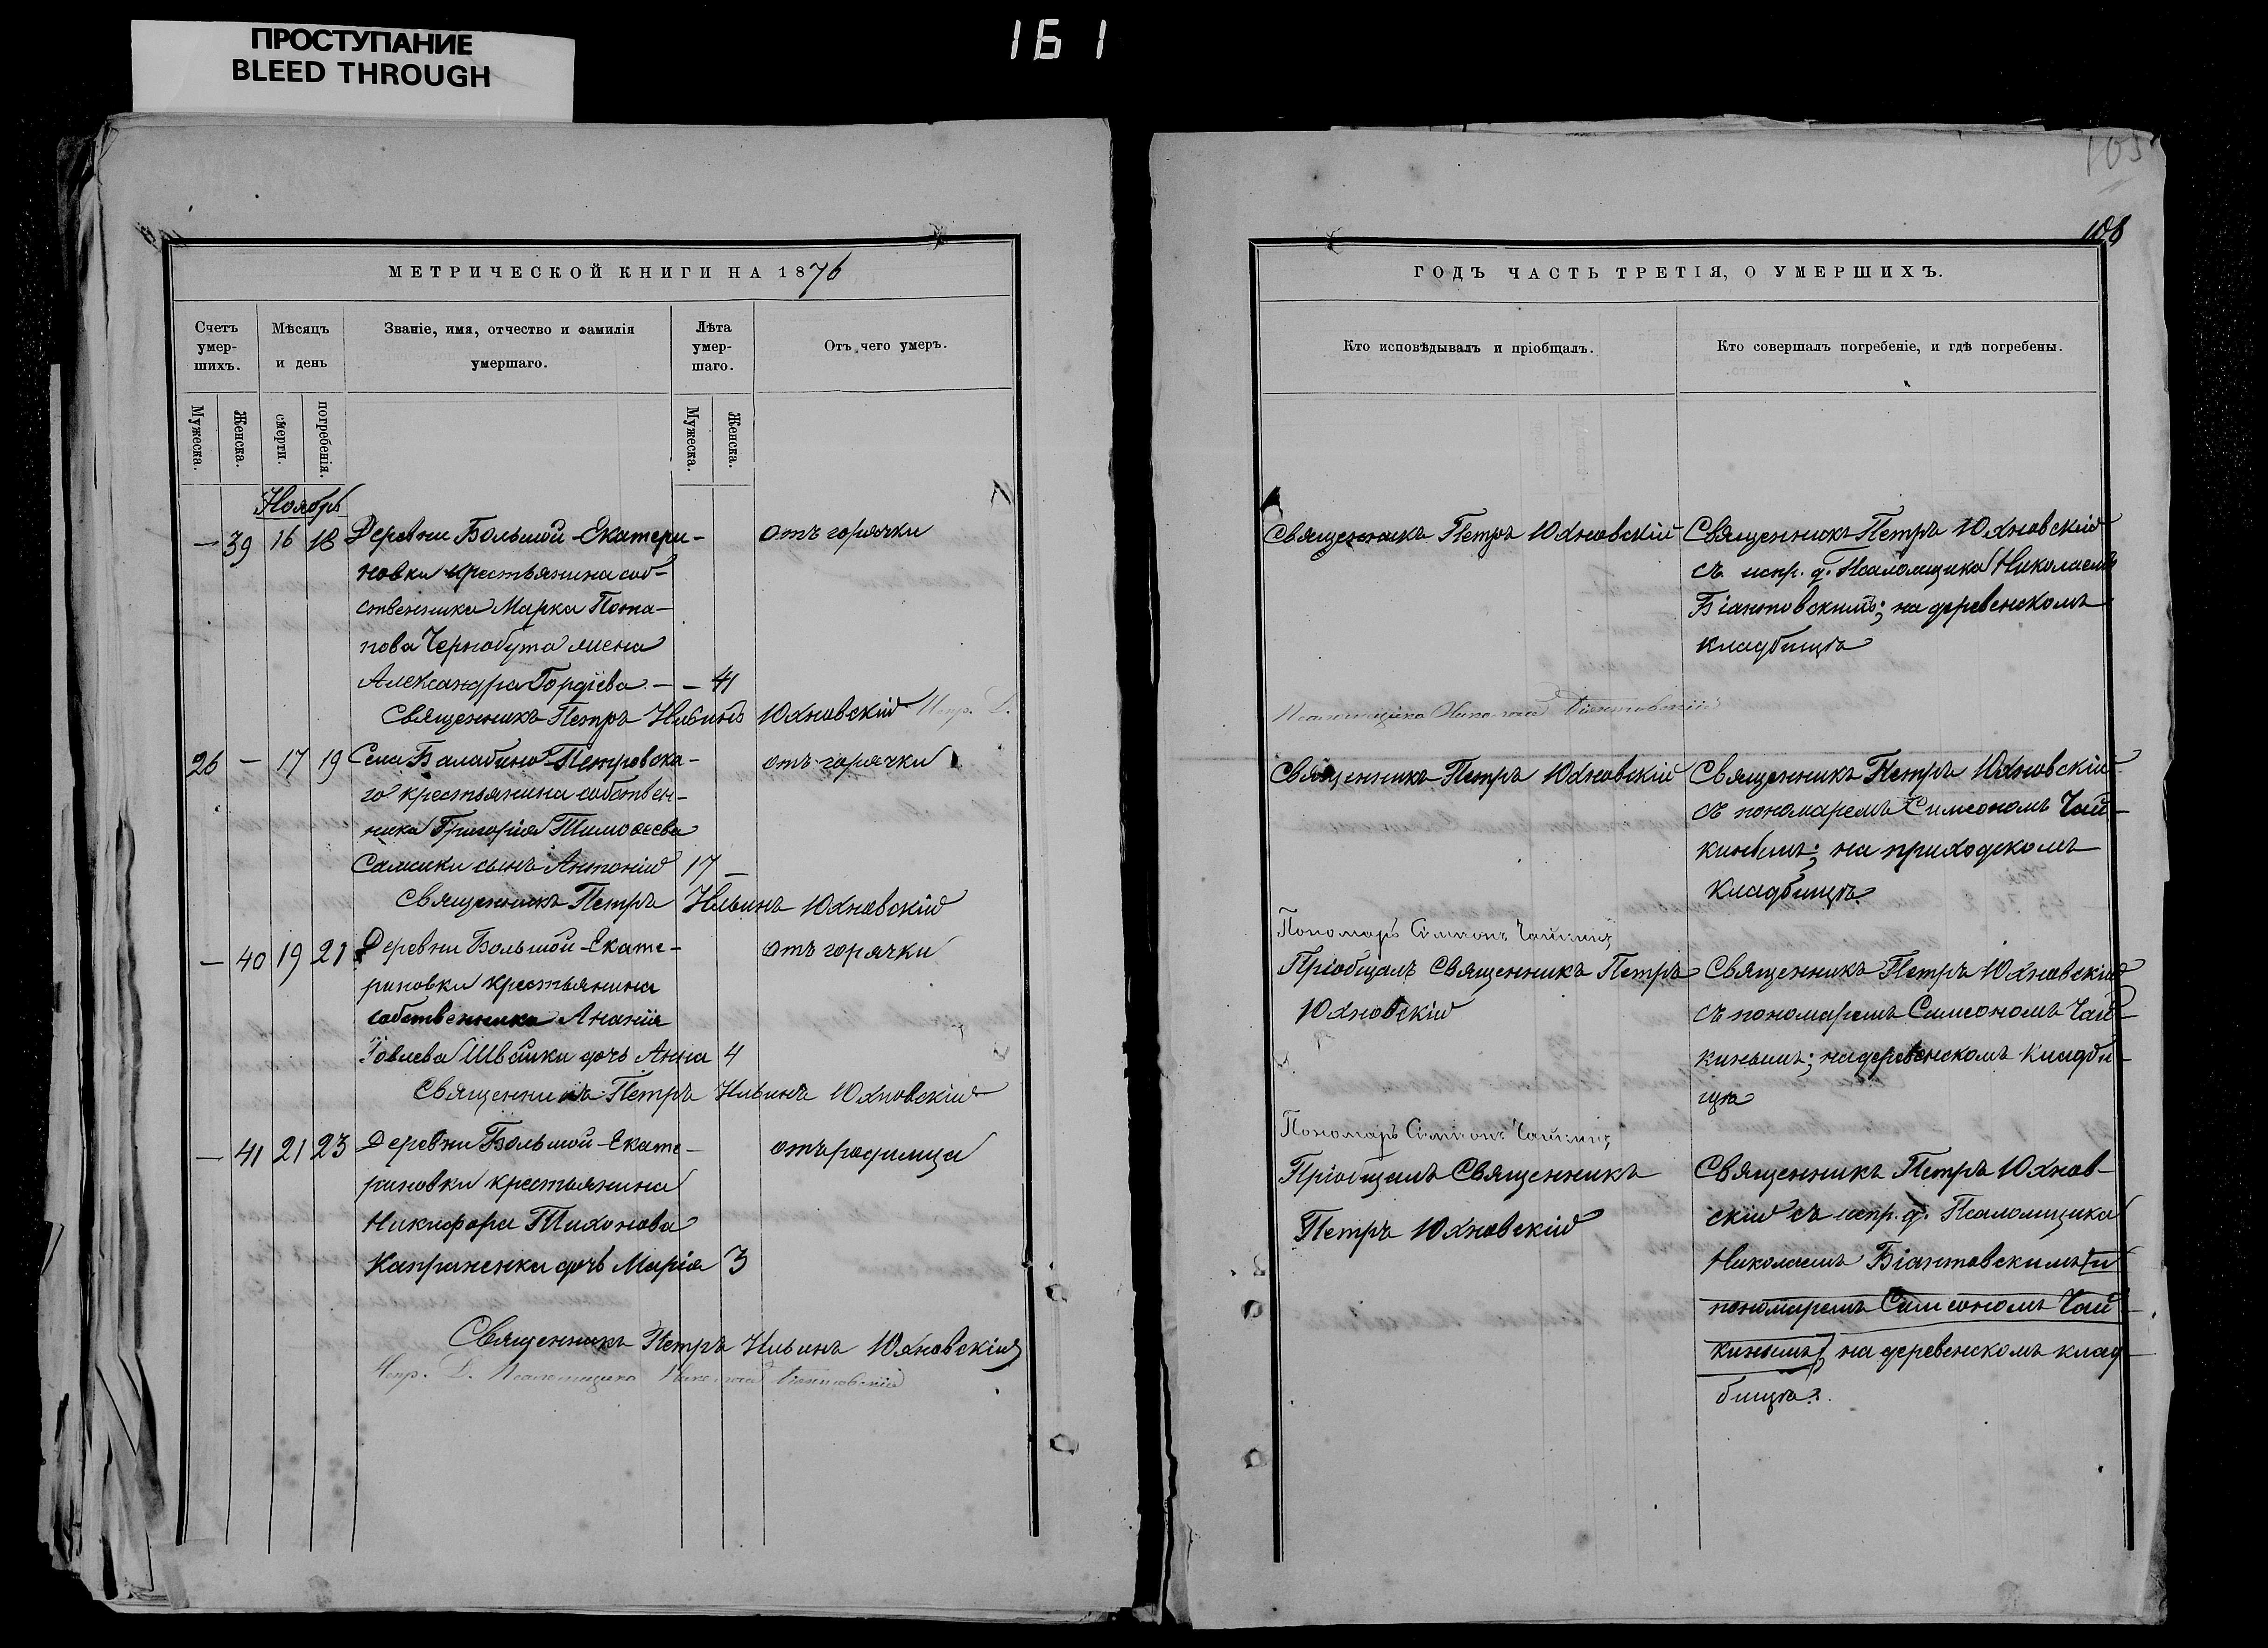 ПРОСТУПАНИЕ
BLEED THROUGH
161
МЕТРИЧЕСКОЙ КНИГИ НА 1876
Счетъ умер-шихъ.
Мѣсяцъ и день
Званіе, имя, отчество и фамилія умершаго.
Лѣта умер-шаго.
Отъ чего умеръ.
Мужеска.
Женска.
смерти.
погребенія.
Мужеска.
Женска.
Ноябрь
— 39 16 18 Деревни Большой-Екатери- отъ горячки
новки крестьянина соб-
ственника Марка Пота-
пова Чернобута жена
Александра Гордіева — — 41
Священникъ Петръ Ильинъ Юхновскій Испр. Д.
26 — 17 19 Села Балабино-Петровска- отъ горячки
го крестьянина собствен-
ника Григорія Тимоѳеева
сынъ Антоній 17 —
Священникъ Петръ Ильинъ Юхновскій
— 40 19 21 Деревни Большой-Екате- отъ горячки
риновки крестьянина
собственника Ананіи
Іовлева Швайки дочь Анна 4
Священникъ Петръ Ильинъ Юхновскій
— 41 21 23 Деревни Большой-Екате- отъ родимца
риновки крестьянина
Никифора Тихонова
Капраненка дочь Марія 3
Священникъ Петръ Ильинъ Юхновскій
Испр. Д. Псаломщика Николай Біантовскій
105
108
ГОДЪ ЧАСТЬ ТРЕТІЯ, О УМЕРШИХЪ.
Кто исповѣдывалъ и пріобщалъ.
Кто совершалъ погребеніе, и гдѣ погребены.
Священникъ Петръ Юхновскій
Священникъ Петръ Юхновскій
съ испр. д. Псаломщика Николаемъ
Біантовскимъ; на деревенскомъ
кладбищѣ
Псаломщика Николай Біантовскій
Священникъ Петръ Юхновскій
Священникъ Петръ Юхновскій
съ пономаремъ Симеономъ Чай-
кинымъ; на приходскомъ
кладбищѣ.
Пономарь Симеонъ Чайкинъ
Пріобщалъ Священникъ Петръ
Юхновскій
Священникъ Петръ Юхновскій
съ пономаремъ Симеономъ Чай-
кинымъ; на деревенскомъ кладби-
щѣ
Пономарь Симеонъ Чайкинъ
Пріобщалъ Священникъ
Петръ Юхновскій
Священникъ Петръ Юхнов-
скій съ испр. д. Псаломщика
Николаемъ Біантовскимъ [и
пономаремъ Симеономъ Чай-
кинымъ]; на деревенскомъ клад-
бищѣ.